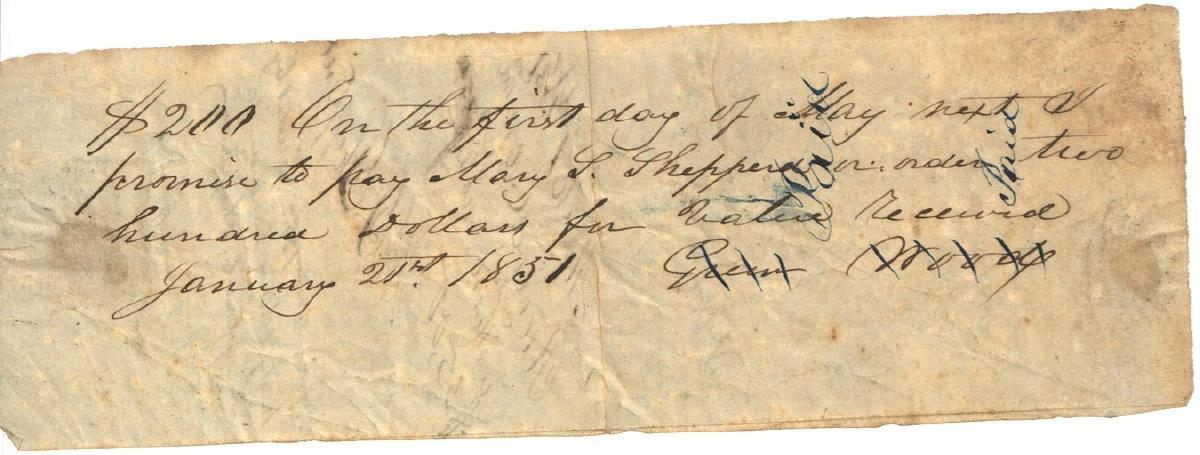 $200 On the first day of May next I
promise to pay Mary S. Shepperd or order two
hundred Dollars for Value Received
January 21st. 1851 Green Woods
Paid
Paid